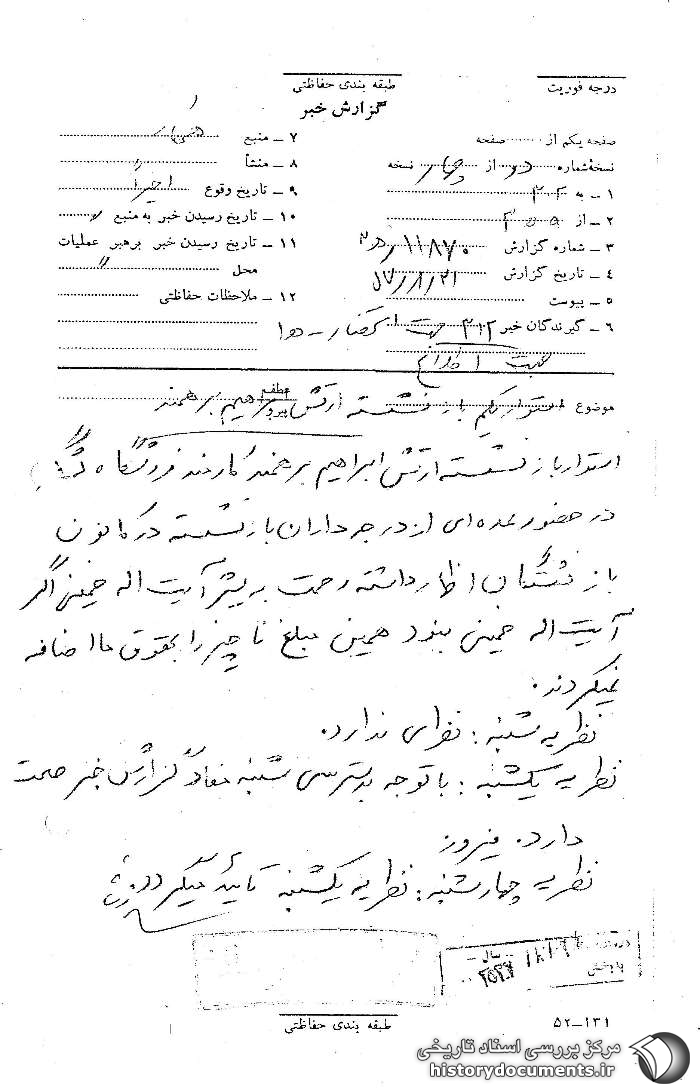 درجه فوریت
طبقه بندی حفاظتی
گزارش خبر
صفحه یکم از صفحه
نسخهٔ شماره دو از چهار نسخه
۱ – به ۳۴۲
۲ – از
۳ – شماره گزارش ۱۱۸۷۰
۴ – تاریخ گزارش ۵۷/۸/۲۱
۵ – پیوست
۶ – گیرندگان خبر ۳۱۲ جهت
۷ – منبع
۸ – منشأ "
۹ – تاریخ وقوع اخیراً
۱۰ – تاریخ رسیدن خبر به منبع "
۱۱ – تاریخ رسیدن خبر برهبر عملیات
محل "
۱۲ – ملاحظات حفاظتی
موضوع استوار یکم بازنشسته ارتش ابراهیم برهمند
استوار بازنشسته ارتش ابراهیم برهمند کارمند فروشگاه
در حضور عده ای از درجه داران بازنشسته در کانون
بازنشستگان اظهار داشته رحمت بریش آیت اله خمینی اگر
آیت اله خمینی نبود همین مبلغ ناچیز را بحقوق ما اضافه
نمیکردند.
نظریه شنبه : نظری ندارد.
نظریه یکشنبه : با توجه بدسترسی شنبه مفاد گزارش خبر صحت
دارد. فیروز
نظریه چهارشنبه : نظریه یکشنبه تائید میگردد.
طبقه بندی حفاظتی
۵۲–۱۳۱
مرکز بررسی اسناد تاریخی
historydocuments.ir